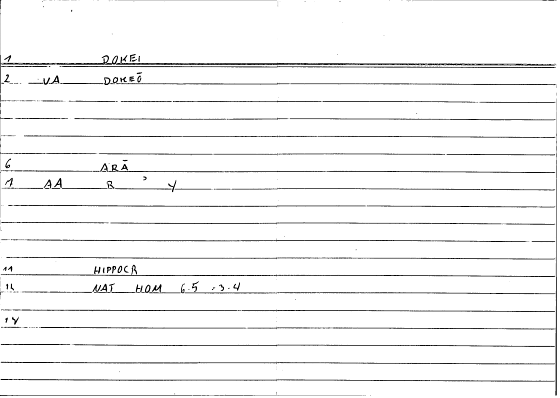 1 DOKEI
2 VA DOKEŌ
6 ARĀ
1 AA R ' Y
11 HIPPOCR
NAT HOM 6.5 .3.4